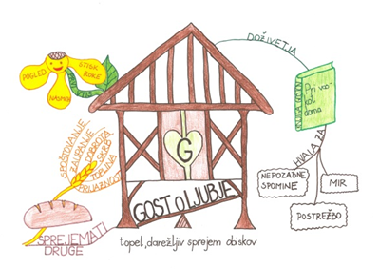 DOŽIVETJA
POGLED
STISK
ROKE
NASMEH
KNJIGA GOSTOV
Pri vas
kot
doma
G
SPOŠTOVANJE
ZAUPANJE
DOBROTA
SKRB
TOPLINA
PRIJAZNOST
HVALA ZA
NEPOZABNE
SPOMINE
MIR
POSTREŽBO
GOSTOLJUBJE
SPREJEMATI
DRUGE
topel, darežljiv sprejem obiskov